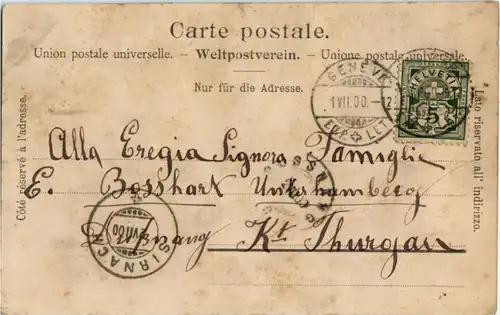 Carte postale.
Union postale universelle. – Weltpostverein. – Unione postale universale.
Nur für die Adresse.
Côté réservé à l'adresse.
Lato riservato all' indirizzo.
GENÈVE
1.VII.00.–2
EXP. LET
HELVETIA
5
Alla Eregia Signora Famiglie
E. Bosshart Unterhamberg
Kt Thurgau
SIRNACH
VII.00